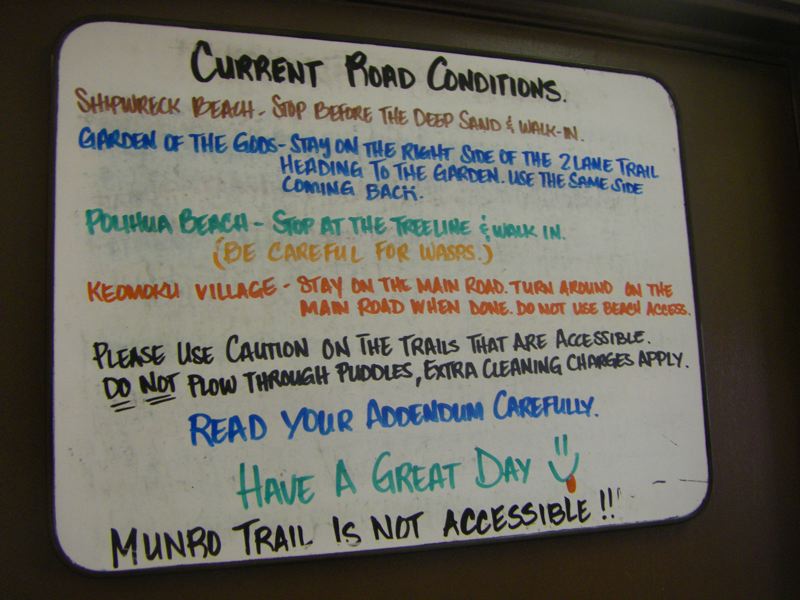 CURRENT ROAD CONDITIONS.
SHIPWRECK BEACH - STOP BEFORE THE DEEP SAND & WALK-IN.
GARDEN OF THE GODS - STAY ON THE RIGHT SIDE OF THE 2 LANE TRAIL
HEADING TO THE GARDEN. USE THE SAME SIDE
COMING BACK.
POLIHUA BEACH - STOP AT THE TREELINE & WALK IN.
(BE CAREFUL FOR WASPS.)
KEOMOKU VILLAGE - STAY ON THE MAIN ROAD. TURN AROUND ON THE
MAIN ROAD WHEN DONE. DO NOT USE BEACH ACCESS.
PLEASE USE CAUTION ON THE TRAILS THAT ARE ACCESSIBLE.
DO NOT PLOW THROUGH PUDDLES, EXTRA CLEANING CHARGES APPLY.
READ YOUR ADDENDUM CAREFULLY.
HAVE A GREAT DAY
MUNRO TRAIL IS NOT ACCESSIBLE!!